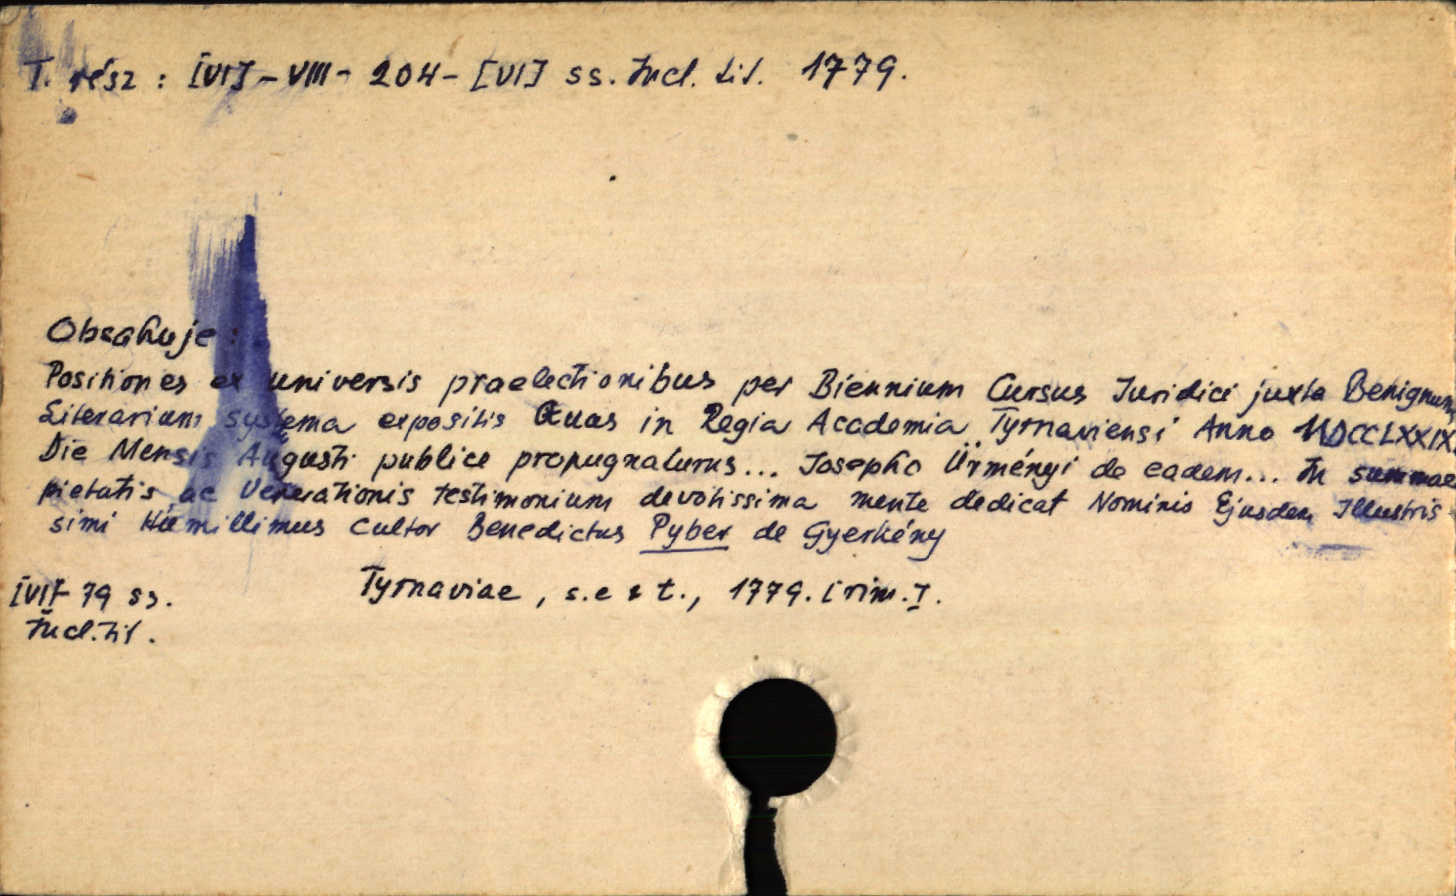 I. rész : [VI] - VIII - 204 - [VI] ss. Incl. tit. 1779.
Obsahuje :
Positiones ex universis praelectionibus per Biennium Cursus Juridici juxta Benignum
Literarium systema expositis Quas in Regia Academia Tyrnaviensi Anno MDCCLXXIX.
Die Mensis Augusti publice propugnaturus... Josepho Ürményi de eadem... In summae
pietatis ac Venerationis testimonium devotissima mente dedicat Nominis Ejusdem Illustris-
simi Humillimus Cultor Benedictus Pyber de Gyerkény
[VI]- 79 ss. Tyrnaviae , s. e t t., 1779. [rim. I.
Incl. tit.